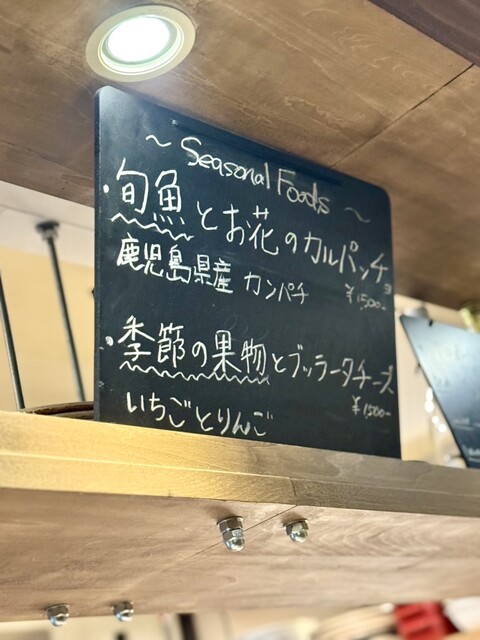 ~ Seasonal Foods ~
・旬魚とお花のカルパッチョ
鹿児島県産 カンパチ
¥1,500-
・季節の果物とブッラータチーズ
¥1500-
いちごとりんご